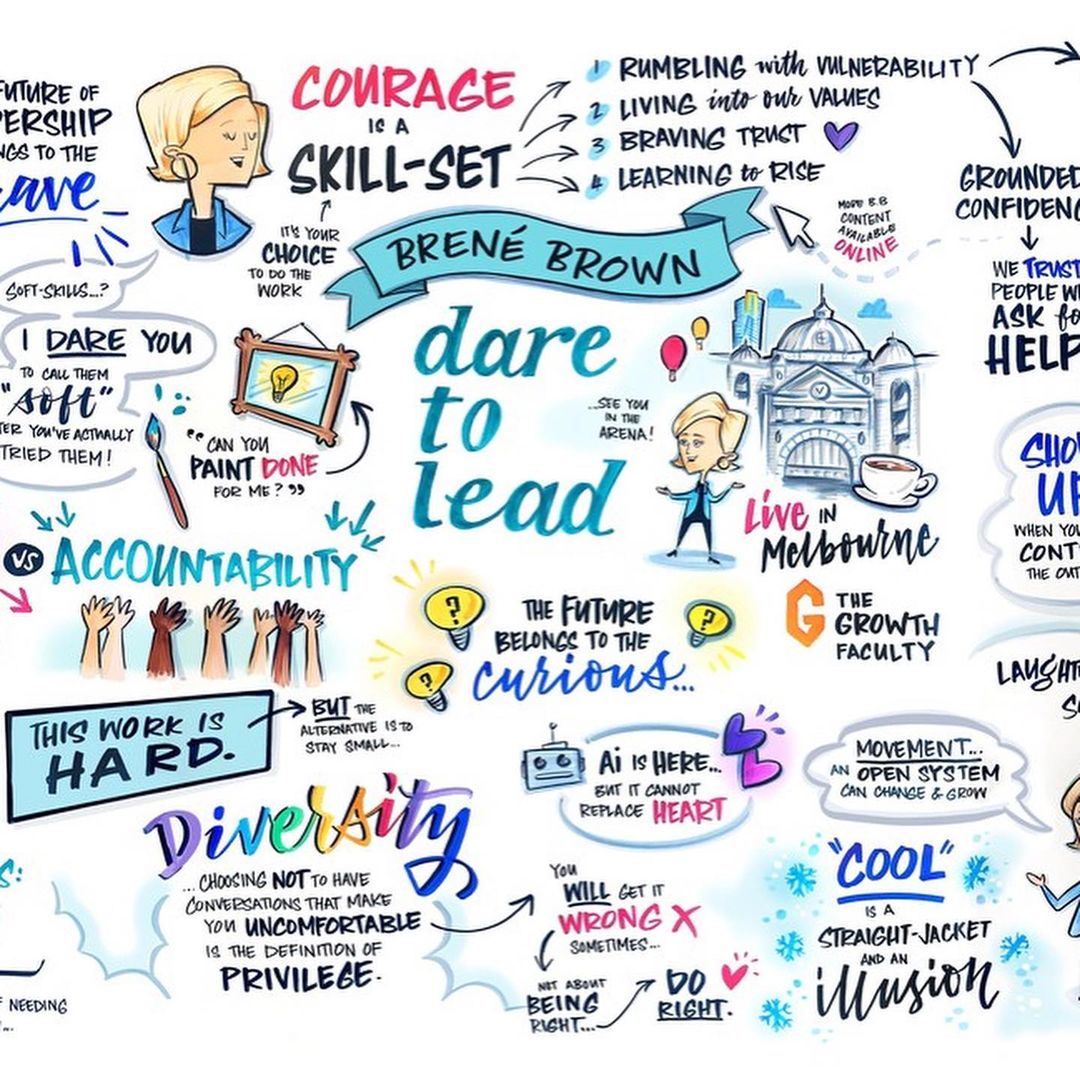 FUTURE OF
THE
ave
COURAGE
IS A
SKILL-SET
IT'S YOUR
CHOICE
TO DO THE
WORK
1 RUMBLING with VULNERABILITY
2 LIVING into our VALUES
3 BRAVING TRUST
4 LEARNING to RISE
GROUNDED
WE TRUST
PEOPLE
ASK
HELP
MORE B.B
CONTENT
AVAILABLE
ONLINE
BRENÉ BROWN
dare
to
lead
SOFT-SKILLS...?
I DARE YOU
TO CALL THEM
"soft"
YOU'VE ACTUALLY
TRIED THEM!
"CAN YOU
PAINT DONE
FOR ME?"
...SEE YOU
IN THE
ARENA!
Live IN
Melbourne
G THE
GROWTH
FACULTY
UP
WHEN
THE
VS ACCOUNTABILITY
THE FUTURE
BELONGS TO THE
curious...
THIS WORK IS
HARD.
BUT THE
ALTERNATIVE IS TO
STAY SMALL...
Ai IS HERE...
BUT IT CANNOT
REPLACE HEART
MOVEMENT...
AN OPEN SYSTEM
CAN CHANGE & GROW
Diversity
...CHOOSING NOT TO HAVE
CONVERSATIONS THAT MAKE
YOU UNCOMFORTABLE
IS THE DEFINITION OF
PRIVILEGE.
YOU
WILL GET IT
WRONG X
SOMETIMES...
NOT ABOUT
BEING
RIGHT...
DO
RIGHT.
"COOL"
IS A
STRAIGHT-JACKET
AND AN
illusion
NEEDING